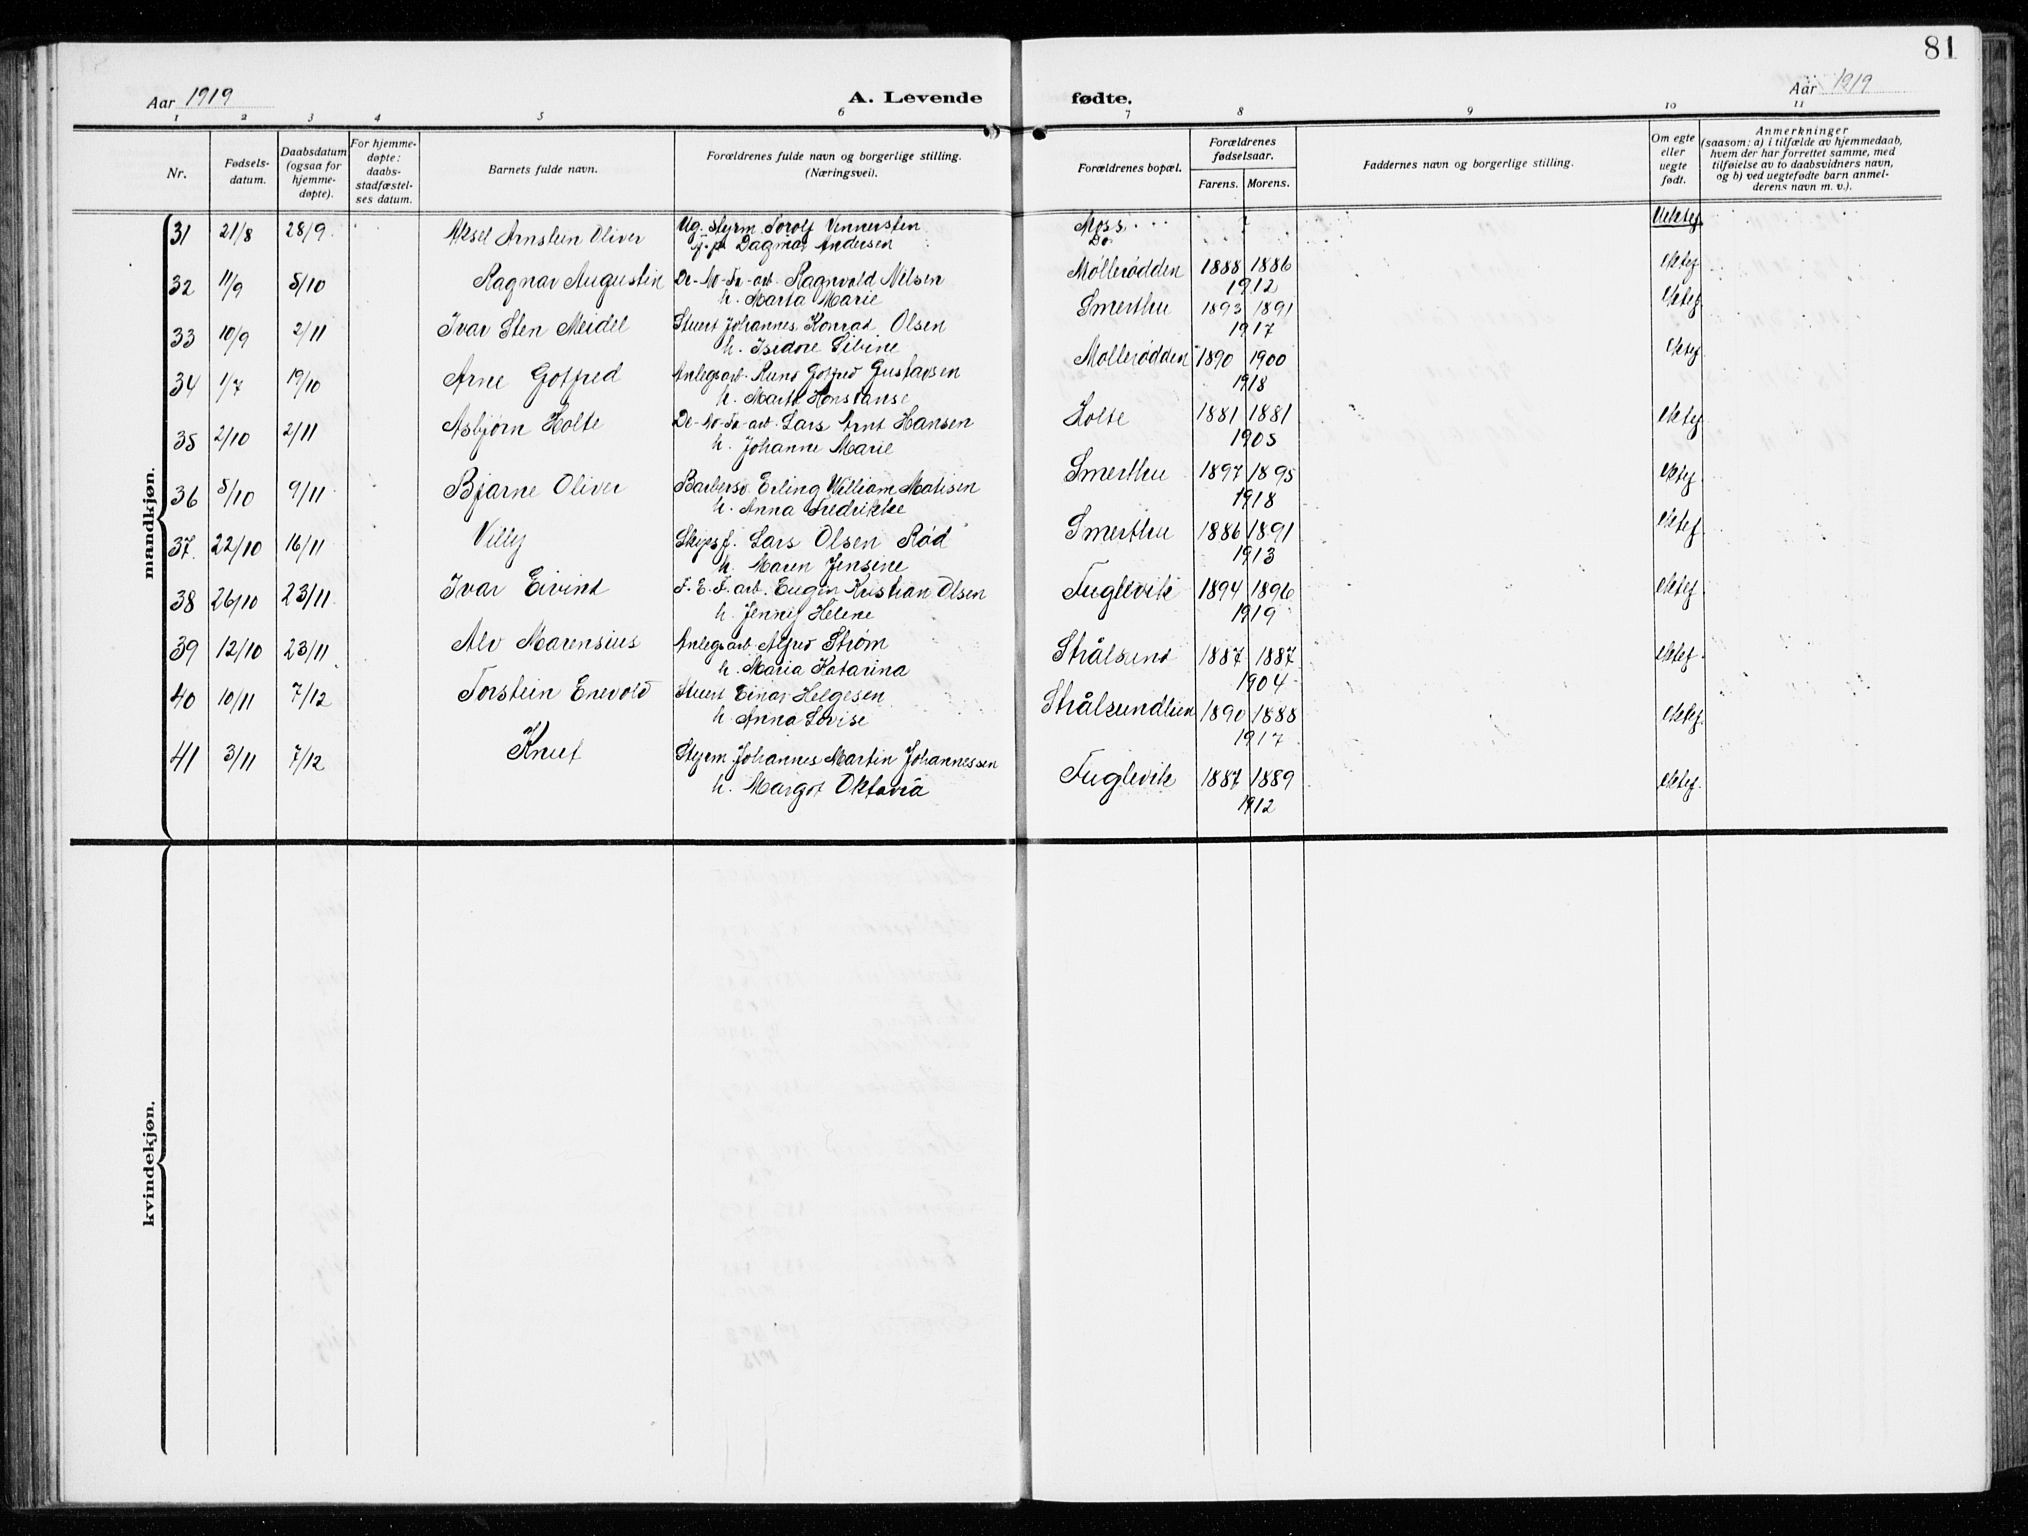 81
Aar 1919
A. Levende fødte.
Aar 1919
1 2 3 4 5 6 7 8 9 10 11
Nr.
Fødsels-
datum.
Daabsdatum
(ogsaa for
hjemme-
døpte).
For hjemme-
døpte:
daabs-
stadfæstel-
ses datum.
Barnets fulde navn.
Forældrenes fulde navn og borgerlige stilling.
(Næringsvei).
Forældrenes bopæl.
Forældrenes
fødselsaar.
Farens. Morens.
Faddernes navn og borgerlige stilling.
Om egte
eller
uegte
født.
Anmerkninger
(saasom: a) i tilfælde av hjemmedaab,
hvem der har forrettet samme, med
tilføielse av to daabsvidners navn,
og b) ved uegtefødte barn anmel-
derens navn m. v.).
mandkjøn.
31 21/8 28/9 Aksel Arnstein Oliver Ug. Styrm. Torolf Vennersten Moss Uektef
p. Dagmar Andersen Do
32 11/9 5/10 Ragnar Augustin De-No-Fa-arb. Ragnvald Nilsen Møllerødden 1888 1886 Ektef
h. Marta Marie 1912
33 10/9 2/11 Ivar Sten Meidel Stuert Johannes Konrad Olsen Smerthu 1893 1891 Ektef
h. Isidore Sibine 1917
34 1/7 19/10 Arne Gotfred Anlegsarb. Gotfred Gustavsen Møllerødden 1890 1900 Ektef
h. Marta Konstanse 1918
35 2/10 2/11 Asbjørn Holte De-No-Fa-arb. Lars Arnt Hansen Holte 1881 1881 Ektef
h. Johanne Marie 1905
36 5/10 9/11 Bjarne Oliver Barbersv. Erling William Matisen Smerthu 1897 1895 Ektef
h. Anna Fredrikke 1918
37. 22/10 16/11 Villy Skipsf. Lars Olsen Rød Smerthu 1886 1891 Ektef
h. Maren Jensine 1913
38 26/10 23/11 Ivar Eivind F. E. F. arb. Eugen Kristian Olsen Fuglevik 1894 1896 Ektef
h. Jenny Helene 1919
39 12/10 23/11 Alv Marensius Anlegsarb Alfred Strøm Strålsund 1887 1887 Ektef
h. Maria Katarina 1904
40 10/11 7/12 Torstein Enevold Stuert Einar Helgesen Strålsundlien 1890 1888 Ektef
h. Anna Lovise 1917
41 3/11 7/12 Knut Styrm Johannes Martin Johannessen Fuglevik 1887 1889 Ektef
h. Margot Oktavia 1912
kvindekjøn.